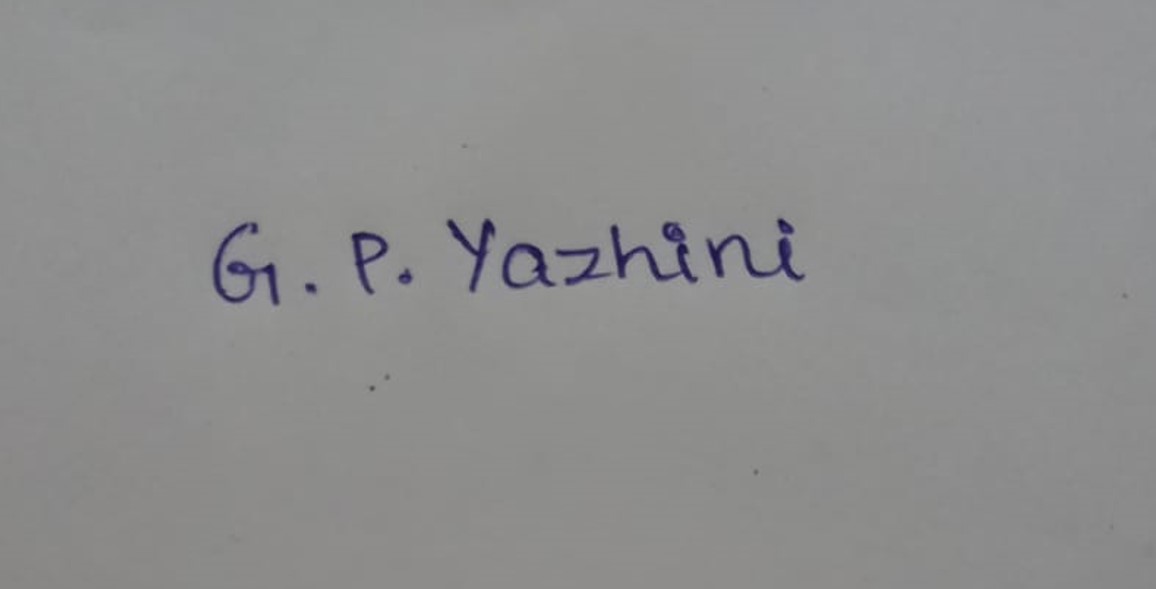 G. P. Yazhini